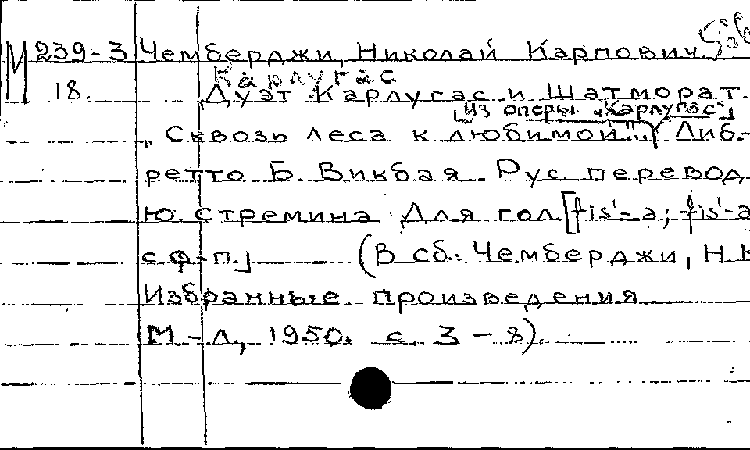 М 239-3 Чемберджи, Николай Карпович.
Карлугас
18. Дуэт Карлугас и Шатморат.
[Из оперы „Карлугас"]
„Сквозь леса к любимой..." Либ-
ретто Б. Викбая. Рус. перевод
Ю. Стремина Для гол. [fis'-a; fis'-a
с ф-п.] (В сб.: Чемберджи, Н.К
Избранные произведения
М.-Л., 1950. с. 3-8).